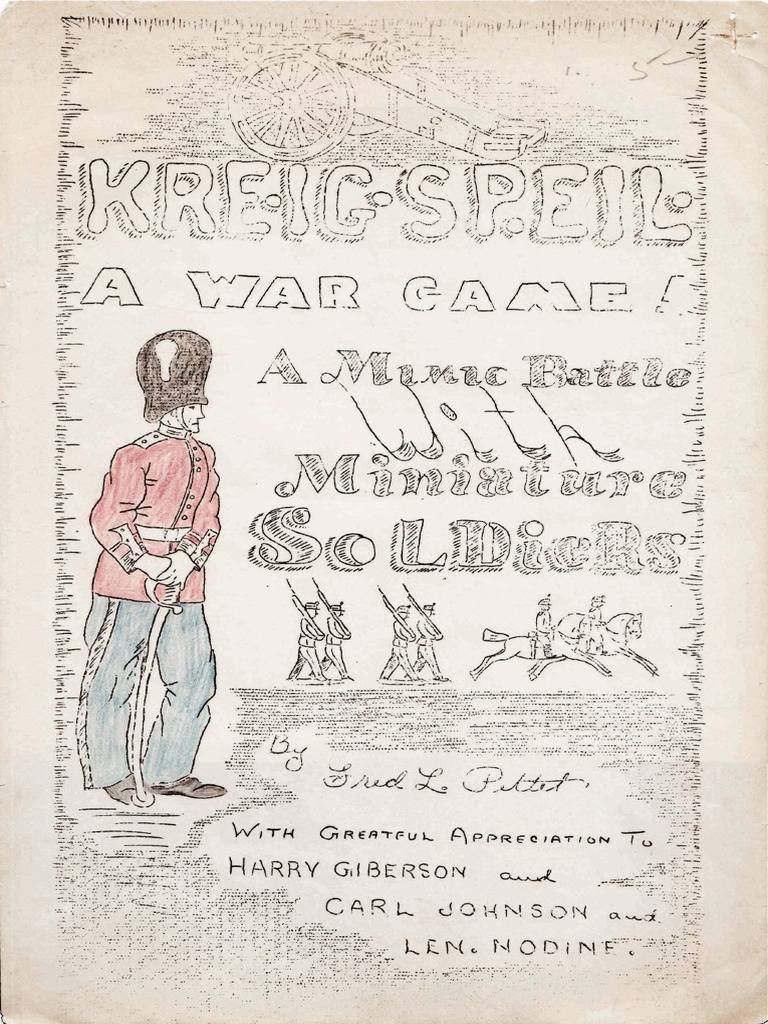 KREIG·SPEIL·
A WAR GAME!
A Mimic Battle
With
Miniature
SoLDieRs
By
Fred L. Pettet.
WITH GREATFUL APPRECIATION TO
HARRY GIBERSON and
CARL JOHNSON and
LEN. NODINE.